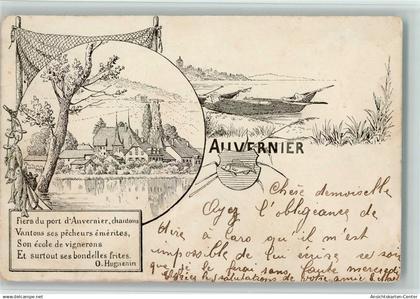 AUVERNIER
Fiers du port d'Auvernier, chantons
Vantons ses pêcheurs émérites,
Son école de vignerons
Et surtout ses bondelles frites.
O. Huguenin
Chère demoiselle
Ayez l'obligeance de
dire à qu'il m'est
impossible de lui écrire ce soir
que je le ferai sans faute mercredi
les salutations de votre amie